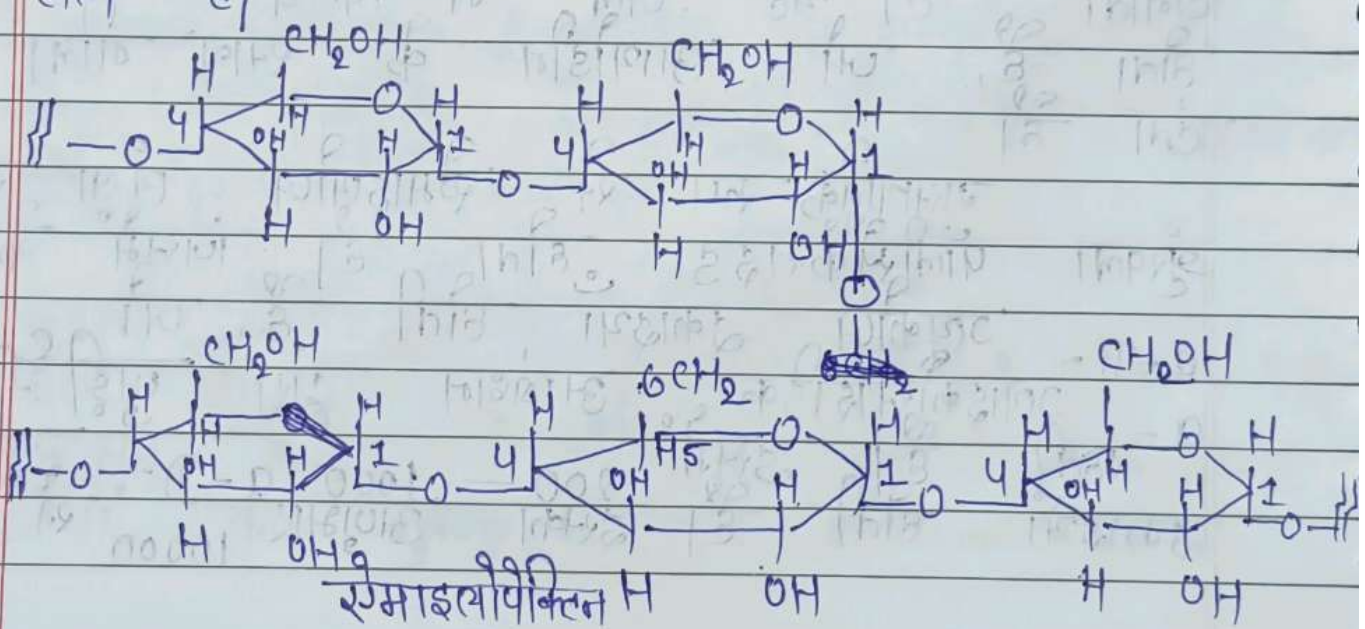 CH₂OH CH₂OH
H H H H
4 O 4 O
O H OH H 1 H OH H 1
O
H OH H OH
O
CH₂OH 6CH₂ CH₂OH
H H H H H H
O H OH H 1 4 H5 O 1 4 H O 1
O OH H O OH H O
H OH H OH H OH
ऐमाइलोपेक्टिन